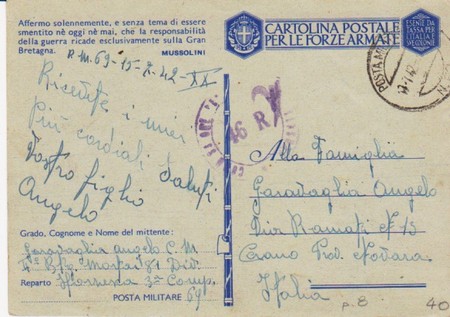 Affermo solennemente, e senza tema di essere
smentito nè oggi nè mai, che la responsabilità
della guerra ricade esclusivamente sulla Gran
Bretagna. MUSSOLINI
CARTOLINA POSTALE
PER LE FORZE ARMATE
ESENTE DA
TASSA PER
L'ITALIA E
SPEDIZIONE
POSTA MI
R M. 69-15-X-42-XX
Ricevete i miei
Più cordiali Saluti
Vostro figlio
Angelo
46 R
Alla Famiglia
Garavaglia Angelo
Via N 15
Cerano Prov. Novara
Italia
Grado, Cognome e Nome del mittente:
Garavaglia Angelo C. M.
Btg. Mortai 81 Div.
Reparto 3ª Comp.
POSTA MILITARE 69
p. 8
40